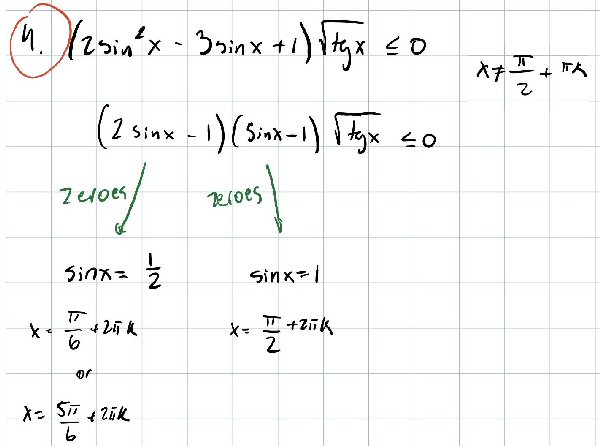 4. (2sin²x - 3sinx + 1)√tgx ≤ 0
x ≠ π/2 + πk
(2 sinx - 1)(sinx - 1) √tgx ≤ 0
zeroes zeroes
sinx = 1/2 sinx = 1
x = π/6 + 2πk x = π/2 + 2πk
or
x = 5π/6 + 2πk